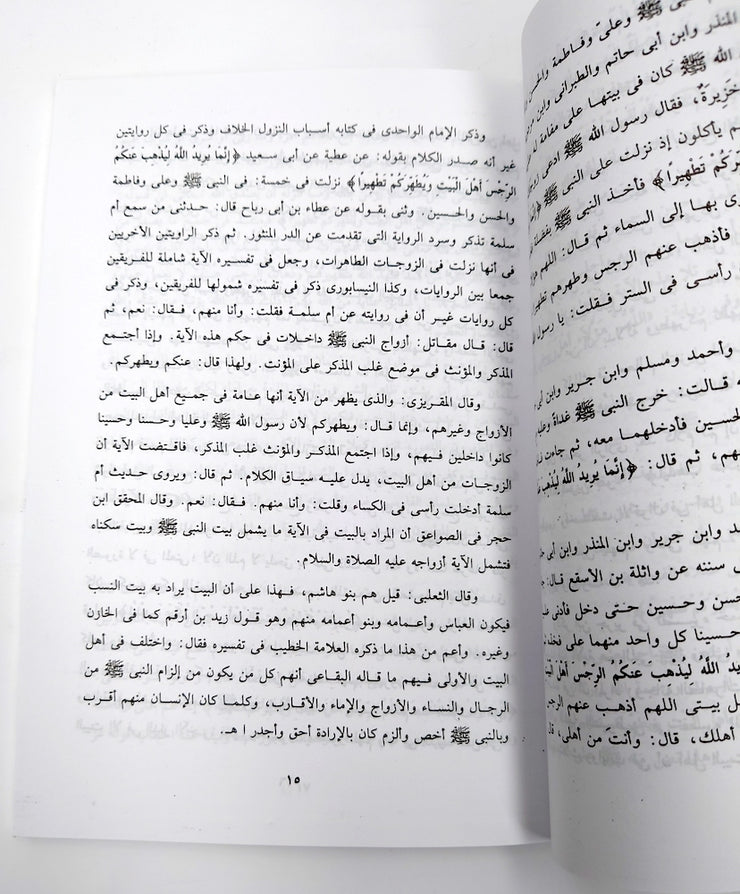 وذكر الإمام الواحدى فى كتابه أسباب النزول الخلاف وذكر فى كل روايتين
غير أنه صدر الكلام بقوله: عن عطية عن أبى سعيد ﴿إِنَّمَا يُرِيدُ اللَّهُ لِيُذْهِبَ عَنكُمُ
الرِّجْسَ أَهْلَ الْبَيْتِ وَيُطَهِّرَكُمْ تَطْهِيرًا﴾ نزلت فى خمسة: فى النبى ﷺ وعلى وفاطمة
والحسن والحسين. وثنى بقوله عن عطاء بن أبى رباح قال: حدثنى من سمع أم
سلمة تذكر وسرد الرواية التى تقدمت عن الدر المنثور. ثم ذكر الراويتين الأخريين
فى أنها نزلت فى الزوجات الطاهرات، وجعل فى تفسيره الآية شاملة للفريقين
جمعا بين الروايات، وكذا النيسابورى ذكر فى تفسيره شمولها للفريقين، وذكر
كل روايات غير أن فى روايته عن أم سلمة فقلت: وأنا منهم، فقال: نعم، ثم
قال: قال مقاتل: أزواج النبى ﷺ داخلات فى حكم هذه الآية. وإذا أجتمع
المذكر والمؤنث فى موضع غلب المذكر على المؤنث. ولهذا قال: عنكم ويطهركم.
وقال المقريزى: والذى يظهر من الآية أنها عامة فى جميع أهل البيت من
الأزواج وغيرهم، وإنما قال: ويطهركم لأن رسول الله ﷺ وعليا وحسنا وحسينا
كانوا داخلين فيهم، وإذا اجتمع المذكر والمؤنث غلب المذكر، فاقتضت الآية أن
الزوجات من أهل البيت، يدل عليه سياق الكلام. ثم قال: ويروى حديث أم
سلمة أدخلت رأسى فى الكساء وقلت: وأنا منهم. فقال: نعم. وقال المحقق ابن
حجر فى الصواعق أن المراد بالبيت فى الآية ما يشمل بيت النبى ﷺ وبيت سكناه
فتشمل الآية أزواجه عليه الصلاة والسلام.
وقال الثعلبى: قيل هم بنو هاشم، فهذا على أن البيت يراد به بيت النسب
فيكون العباس وأعمامه وبنو أعمامه منهم وهو قول زيد بن أرقم كما فى الخازن
وغيره. وأعم من هذا ما ذكره العلامة الخطيب فى تفسيره فقال: واختلف فى أهل
البيت والأولى فيهم ما قاله البقاعى أنهم كل من يكون من إلزام النبى ﷺ من
الرجال والنساء والأزواج والإماء والأقارب، وكلما كان الإنسان منهم أقرب
وبالنبى ﷺ أخص وألزم كان بالإرادة أحق وأجدر ا هـ.
١٥
ﷺ وعلىّ وفاطمة والحسن
المنذر وابن أبى حاتم والطبرانى وابن
الله ﷺ كان فى بيتها على منامة له
خَزِيرَةٌ، فقال رسول الله ﷺ ادعى
يأكلون إذ نزلت على النبى ﷺ
تَطْهِيرًا﴾ فأخذ النبى ﷺ بفضلة
بها إلى السماء ثم قال: اللهم
فأذهب عنهم الرجس وطهرهم
رأسى فى الستر فقلت: يا رسول
وأحمد ومسلم وابن جرير وابن أبى
قالت: خرج النبى ﷺ غداة وعليه
الحسين فأدخلهما معه، ثم جاء
ثم قال: ﴿إِنَّمَا يُرِيدُ اللَّهُ لِيُذْهِبَ
وابن جرير وابن المنذر وابن أبى
سننه عن واثلة بن الأسقع قال:
حسن وحسين حتى دخل فأدنى
حسينا كل واحد منهما على فخذه
اللَّهُ لِيُذْهِبَ عَنكُمُ الرِّجْسَ أَهْلَ
بيتى اللهم أذهب عنهم الرجس
أهلك، قال: وأنتَ من أهلى،